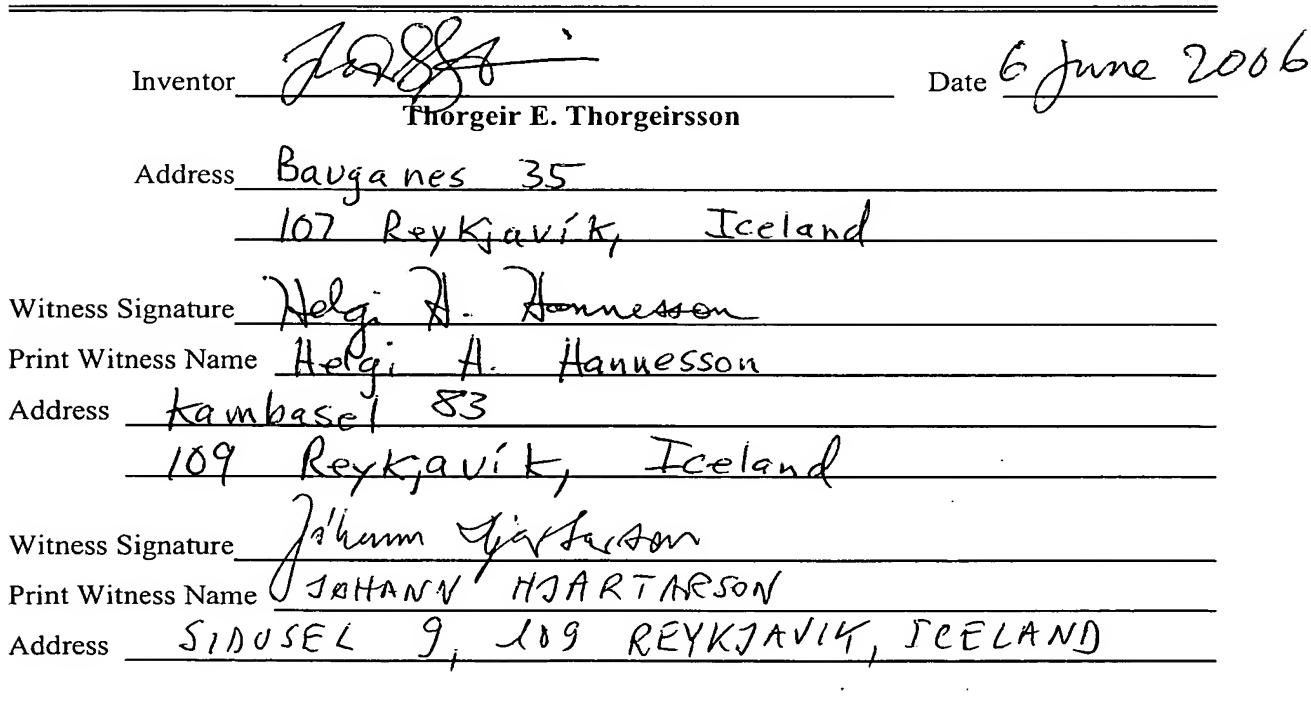 Inventor Date 6 June 2006
Thorgeir E. Thorgeirsson
Address Bauganes 35
107 Reykjavík, Iceland
Witness Signature Helgi H. Hannesson
Print Witness Name Helgi H. Hannesson
Address Kambasel 83
109 Reykjavík, Iceland
Witness Signature Jóhann Hjartarson
Print Witness Name JOHANN HJARTARSON
Address SIDUSEL 9, 109 REYKJAVIK, ICELAND